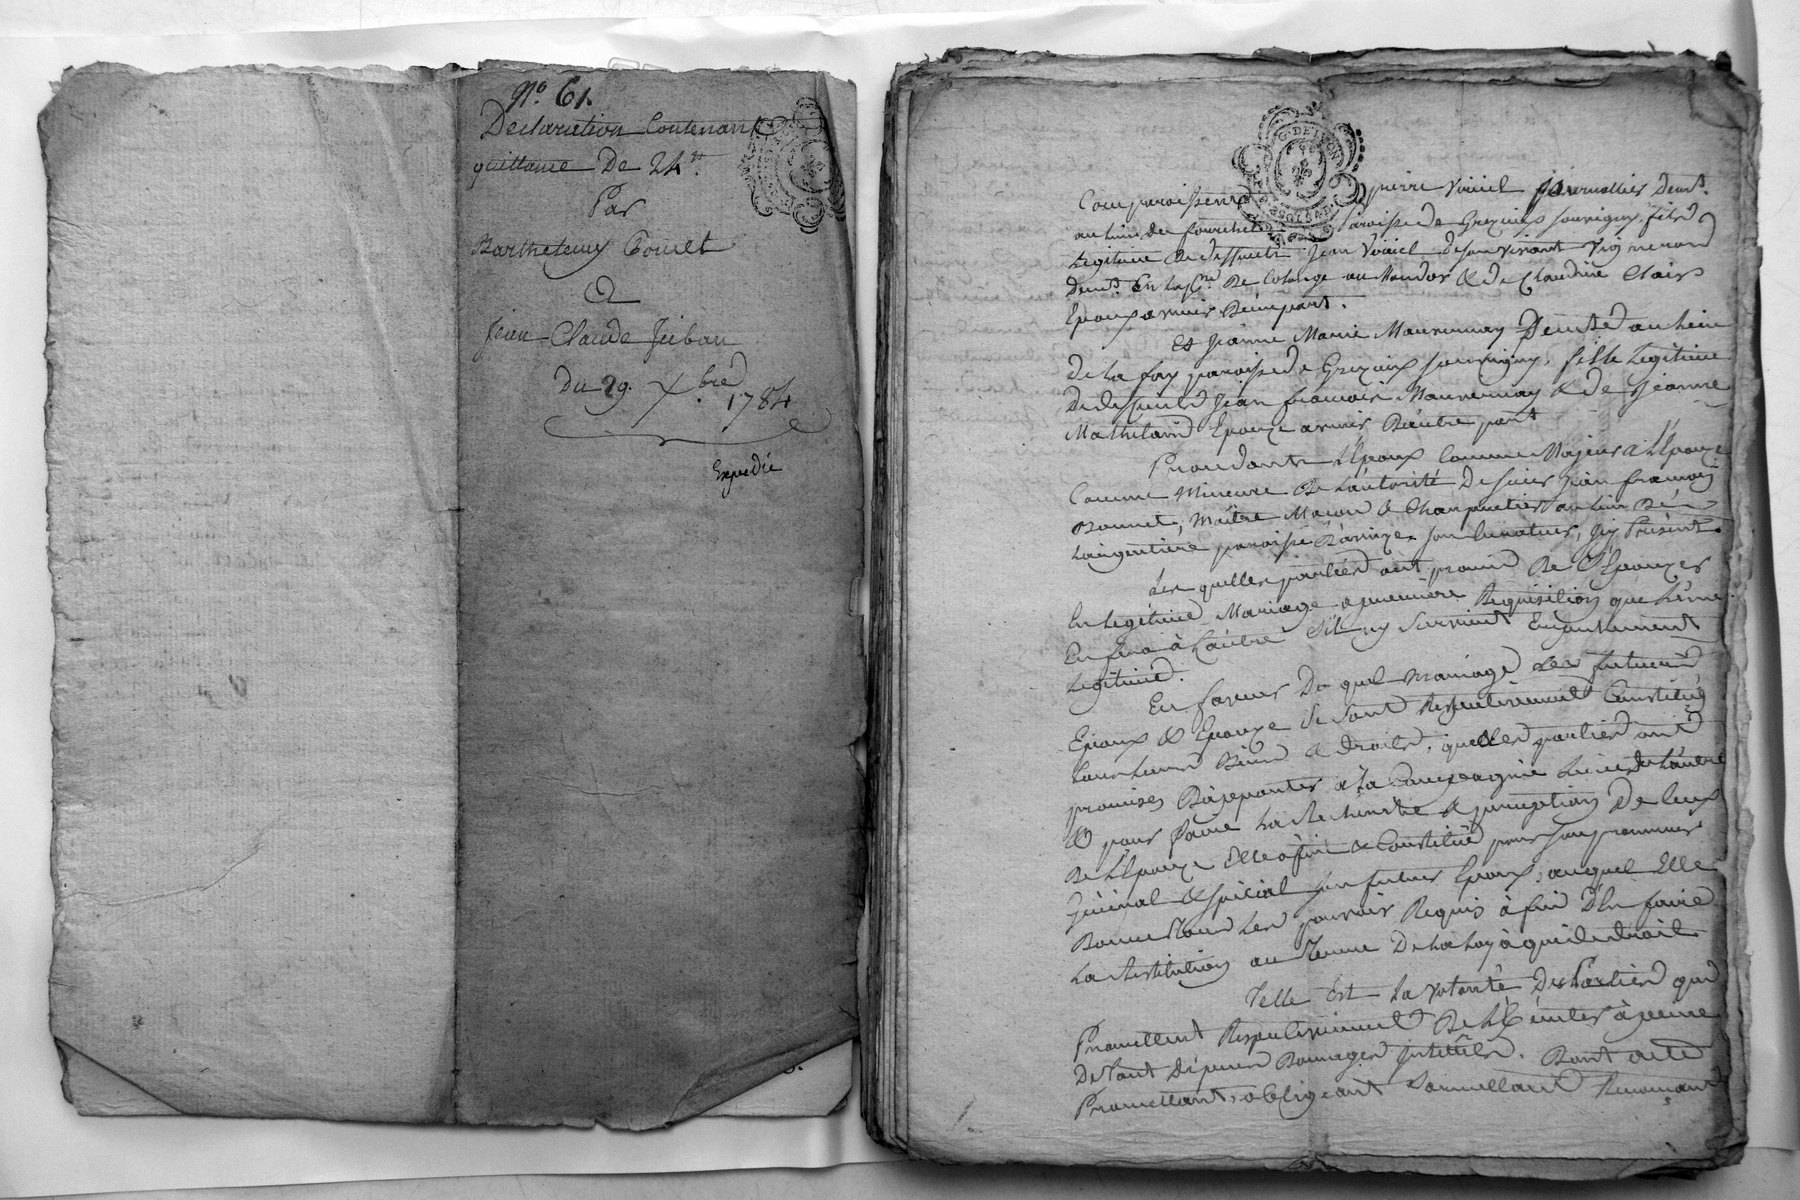 N.º 61.
Declaration Contenant
quittance De 24.tt
Par
Barthelemy
A
Jean-Claude
Du 29. Xbre 1784
Expedié
G. DE LYON
Comparoissent pierre journallier Demt.
au lieu de paroisse de Grezieu souvigny, fils
Legitime de deffunts Jean De son vivant vigneron
Demt. En la De Colonge au Mondor & de Claudine Clair
Epoux avenir D'une part.
Et Jeanne Marie au lieu
De la foy paroisse de Grezieux souvigny, fille Legitime
De deffunts Jean francois & de Jeanne
Epouze avenir D'autre part
Procedants L'Epoux Comme Majeur & L'Epouze
Comme Mineure De L'autorité De sieur Jean francois
Bonnet, Maitre Macon & Charpentier au lieu De
Largentiere paroisse son Curateur, Icy Present.
Les quelles parties ont promis De S'Epouzer
En Legitime Mariage a premiere Requisition que L'une
En fera à L'autre S'il ny Survient Empechement
Legitime.
En faveur Du quel Mariage Les futurs
Epoux & Epouze Se Sont Respectivement Constitués
tous Leurs Biens & droits, quelles parties ont
promises D'apporter a La Compagnie L'un de L'autre
& pour faire La Recherche & perception De Ceux
De L'Epouze Elle a fait & Constitué pour son procureur
Général & spécial son futur Epoux, auquel Elle
Donne tous Les pouvoirs Requis à fin D'En faire
La Restitution au Terme De La Loy à qui de droit.
Telle Est La volonté Des Parties qui
Promettent Respectivement De L'Executer à peine
De tout Dépens Dommages Interêts. Dont acte
Promettant, obligeant Soumettant Renoncant